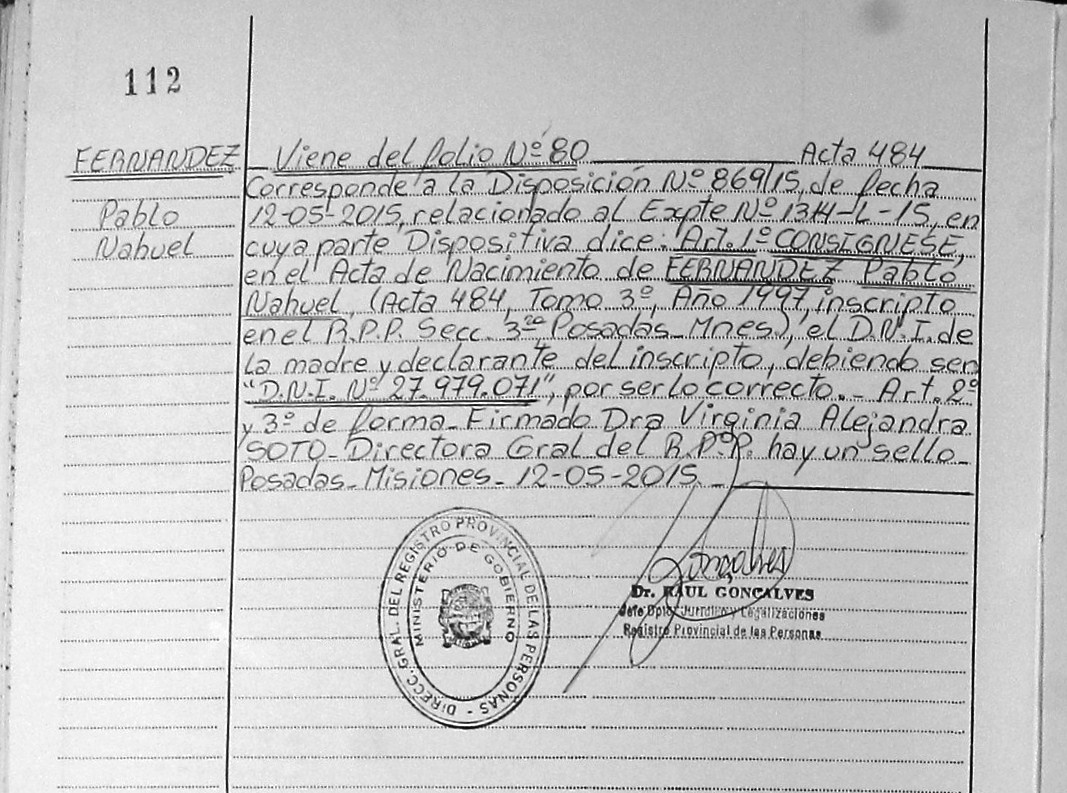 112
FERNANDEZ
Pablo
Nahuel
Viene del folio Nº 80 Acta 484
Corresponde a la Disposición Nº 869/15, de fecha
12-05-2015, relacionado al Expte Nº 1314-L-15, en
cuya parte Dispositiva dice: Art. 1º CONSIGNESE,
en el Acta de Nacimiento de FERNANDEZ Pablo
Nahuel, (Acta 484, Tomo 3º, Año 1997, inscripto
en el R.P.P. Secc. 3ra Posadas-Mnes.), el D.N.I. de
la madre y declarante del inscripto, debiendo ser
"D.N.I. Nº 27.979.071", por ser lo correcto.- Art. 2º
y 3º de forma-Firmado Dra Virginia Alejandra
SOTO-Directora Gral del R.P.P. hay un sello-
Posadas-Misiones-12-05-2015.-
DIRECC. GRAL. DEL REGISTRO PROVINCIAL DE LAS PERSONAS -
MINISTERIO DE GOBIERNO
Gonçalves
Dr. RAUL GONCALVES
Jefe Dpto. Jurídico y Legalizaciones
Registro Provincial de las Personas